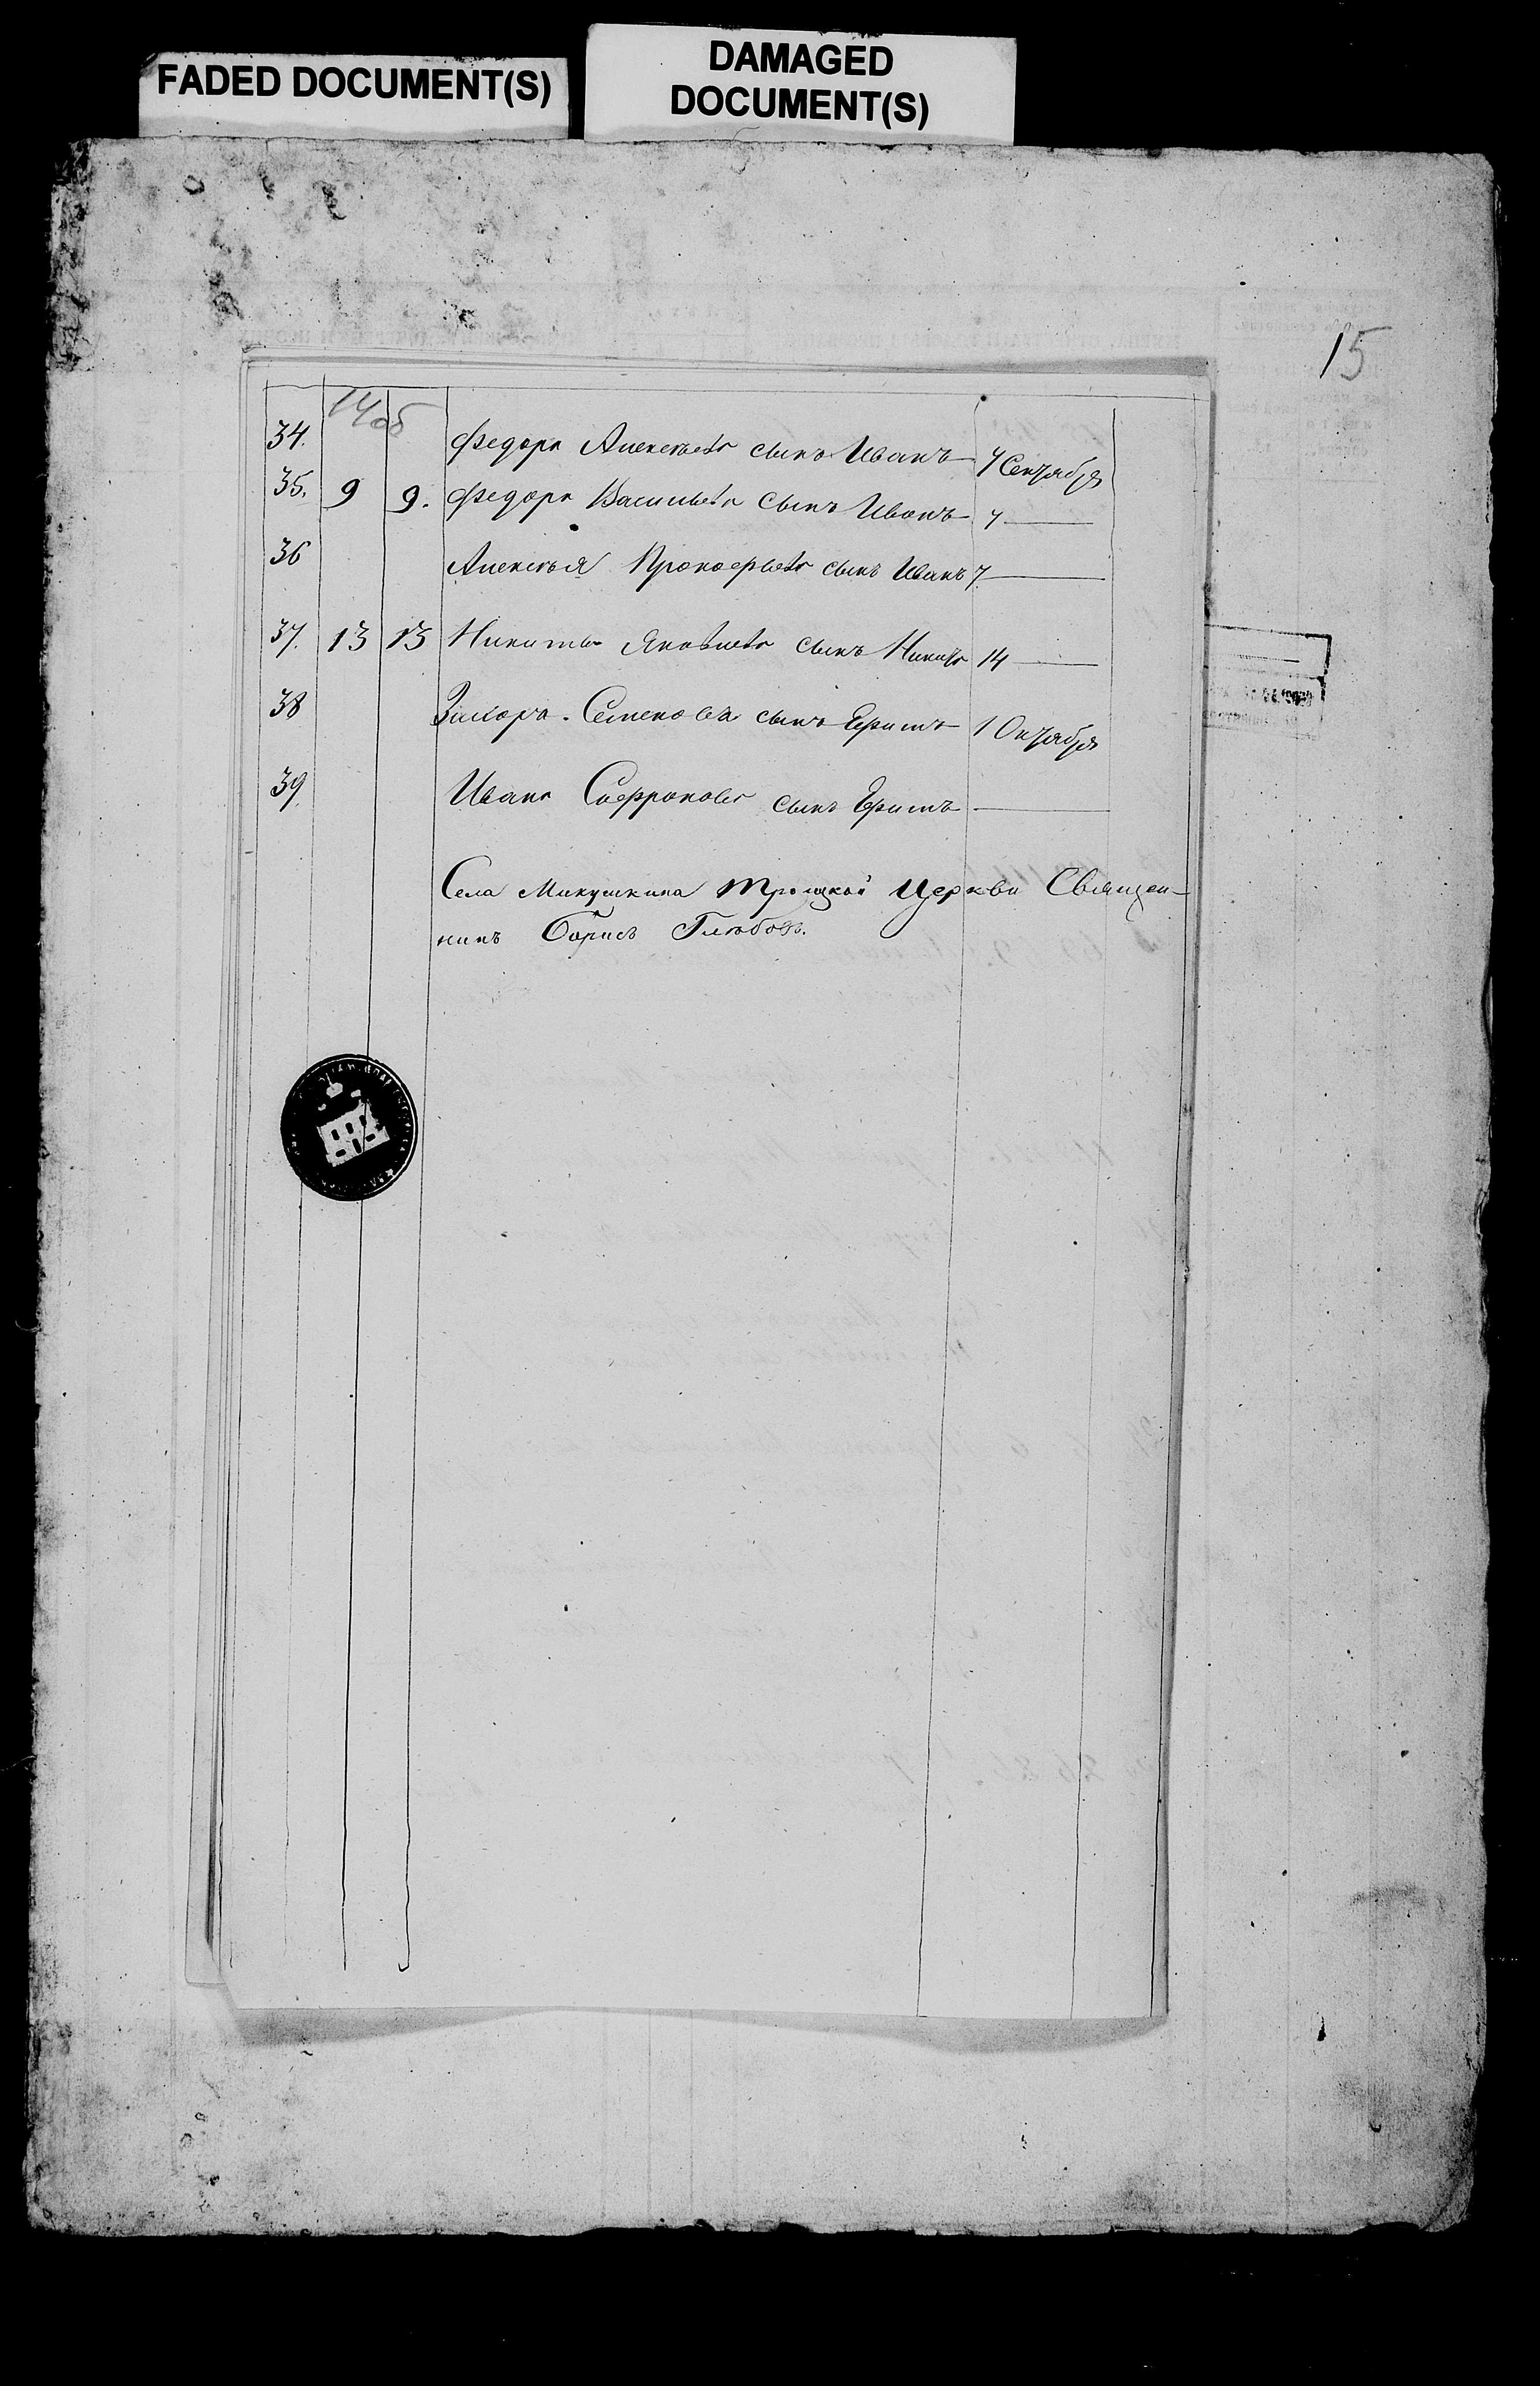 FADED DOCUMENT(S)
DAMAGED
DOCUMENT(S)
15
14 об
34. Федора Алексѣева сынъ Иванъ 7 Сентября
35. 9 9. Федора Васильева сынъ Иванъ 7 —
36 Алексѣя Прокофьева сынъ Иванъ 7 —
37. 13 13 Никиты Яковлева сынъ Никита 14 —
38 Семенова сынъ 1 Октября
39 Ивана Софронова сынъ —
Села Микушкина Троицкой Церкви Священ-
никъ Борисъ Глѣбовъ.